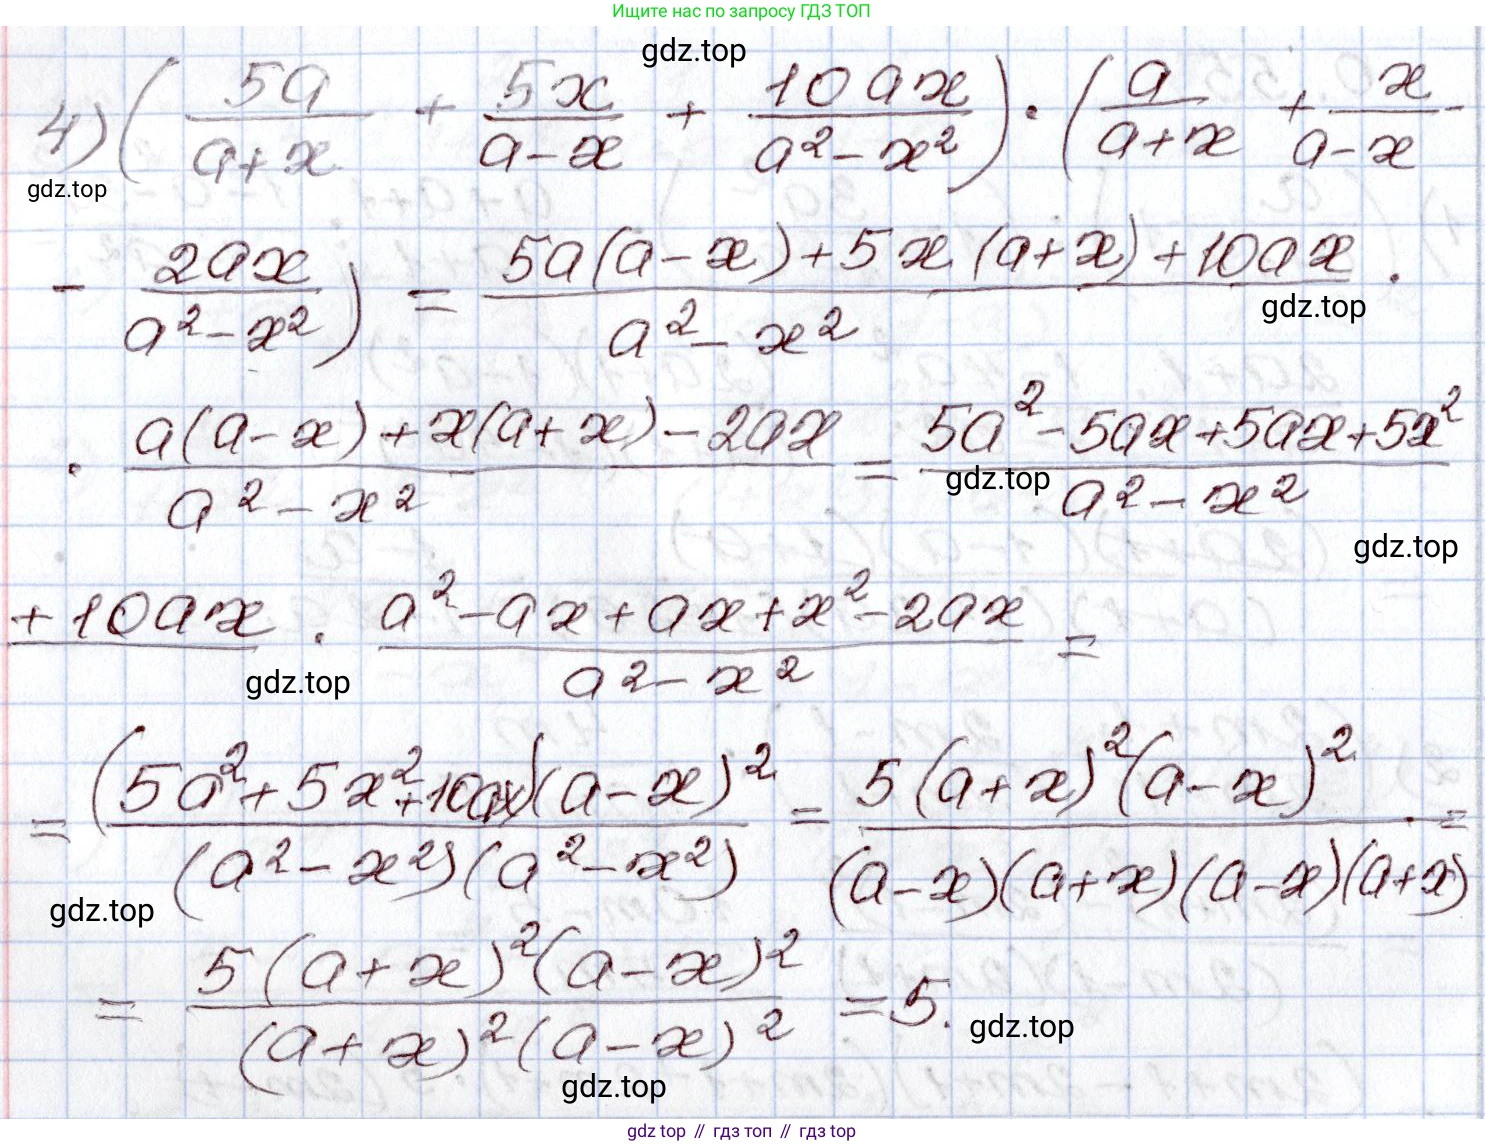 Ищите нас по запросу ГДЗ ТОП
gdz.top
4) (5a/(a+x) + 5x/(a-x) + 10ax/(a²-x²)) · (a/(a+x) + x/(a-x) -
gdz.top
- 2ax/(a²-x²)) = (5a(a-x)+5x(a+x)+10ax)/(a²-x²) ·
gdz.top
· (a(a-x)+x(a+x)-2ax)/(a²-x²) = (5a²-5ax+5ax+5x²)/(a²-x²)
gdz.top
gdz.top
+10ax · (a²-ax+ax+x²-2ax)/(a²-x²) =
gdz.top
= (5a²+5x²+10ax)(a-x)²/((a²-x²)(a²-x²)) = 5(a+x)²(a-x)²/((a-x)(a+x)(a-x)(a+x)) =
gdz.top
= 5(a+x)²(a-x)²/((a+x)²(a-x)²) = 5.
gdz.top
gdz.top
gdz top // гдз топ // гдз top